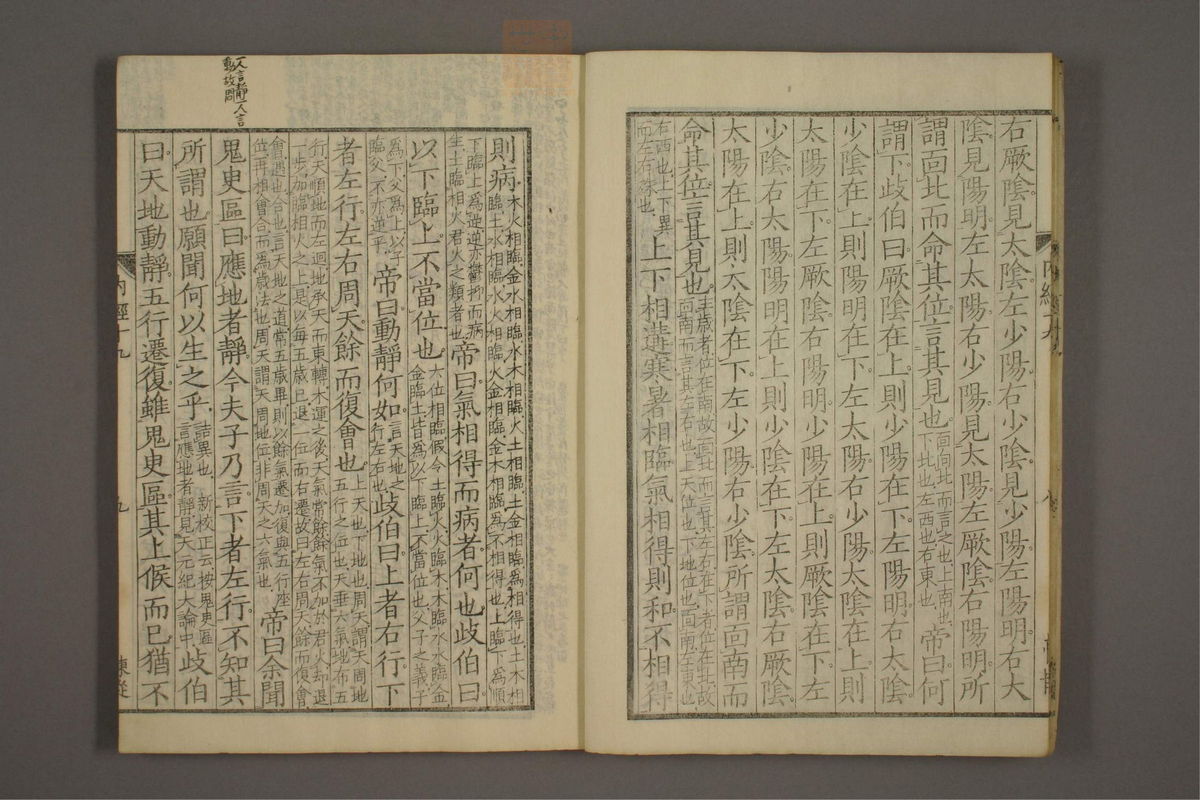 右厥陰見太陰左少陽右少陰見少陽左陽明右太
陰見陽明左太陽右少陽見太陽左厥陰右陽明所
謂面北而命其位言其見也面向北而言之也上南也下北也左西也右東也帝曰何
謂下歧伯曰厥陰在上則少陽在下左陽明右太陰
少陰在上則陽明在下左太陽右少陽太陰在上則
太陽在下左厥陰右陽明少陽在上則厥陰在下左
少陰右太陽陽明在上則少陰在下左太陰右厥陰
太陽在上則太陰在下左少陽右少陰所謂面南而
命其位言其見也主歲者位在南故面北而言其左右在下者位在北故面南而言其左右也上天位也下地位也面南左東也
右西也上下異而左右殊也上下相遘寒暑相臨氣相得則和不相得
則病木火相臨金水相臨水木相臨火土相臨土金相臨為相得也土木相臨土水相臨水火相臨火金相臨金木相臨為不相得也上臨下為順
下臨上為逆逆亦鬱抑而病生土臨相火君火之類者也帝曰氣相得而病者何也歧伯曰
以下臨上不當位也六位相臨假令土臨火火臨木木臨水水臨金金臨土皆為以下臨上不當位也父子之義子
為下父為上以子臨父不亦逆乎帝曰動靜何如言天地之行左右也歧伯曰上者右行下
者左行左右周天餘而復會也上天也下地也周天謂天周地五行之位也天垂六氣地布五
行天順地而左迴地承天而東轉木運之後天氣常餘餘氣不加於君火却退一步加臨相火之上是以每五歲已退一位而右遷故曰左右周天餘而復會
會遇也合也言天地之道常五歲畢則以餘氣遷加復與五行座位再相會合而為歲法也周天謂天周地位非周天之六氣也帝曰余聞
鬼臾區曰應地者靜今夫子乃言下者左行不知其
所謂也願聞何以生之乎詰異也新校正云按鬼臾區言應地者靜見天元紀大論中歧伯
曰天地動靜五行遷復雖鬼臾區其上候而已猶不
一人言靜一人言
動故問
內經十九
九